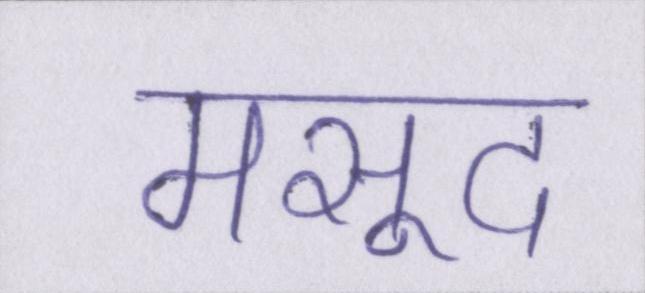 मसूद